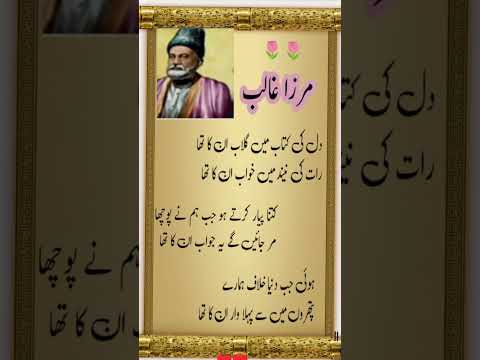 مرزا غالب
دل کی کتاب میں گلاب ان کا تھا
رات کی نیند میں خواب ان کا تھا
کتنا پیار کرتے ہو جب ہم نے پوچھا
مر جائیں گے یہ جواب ان کا تھا
ہوئی جب دنیا خلاف ہمارے
پتھروں میں سے پہلا وار ان کا تھا